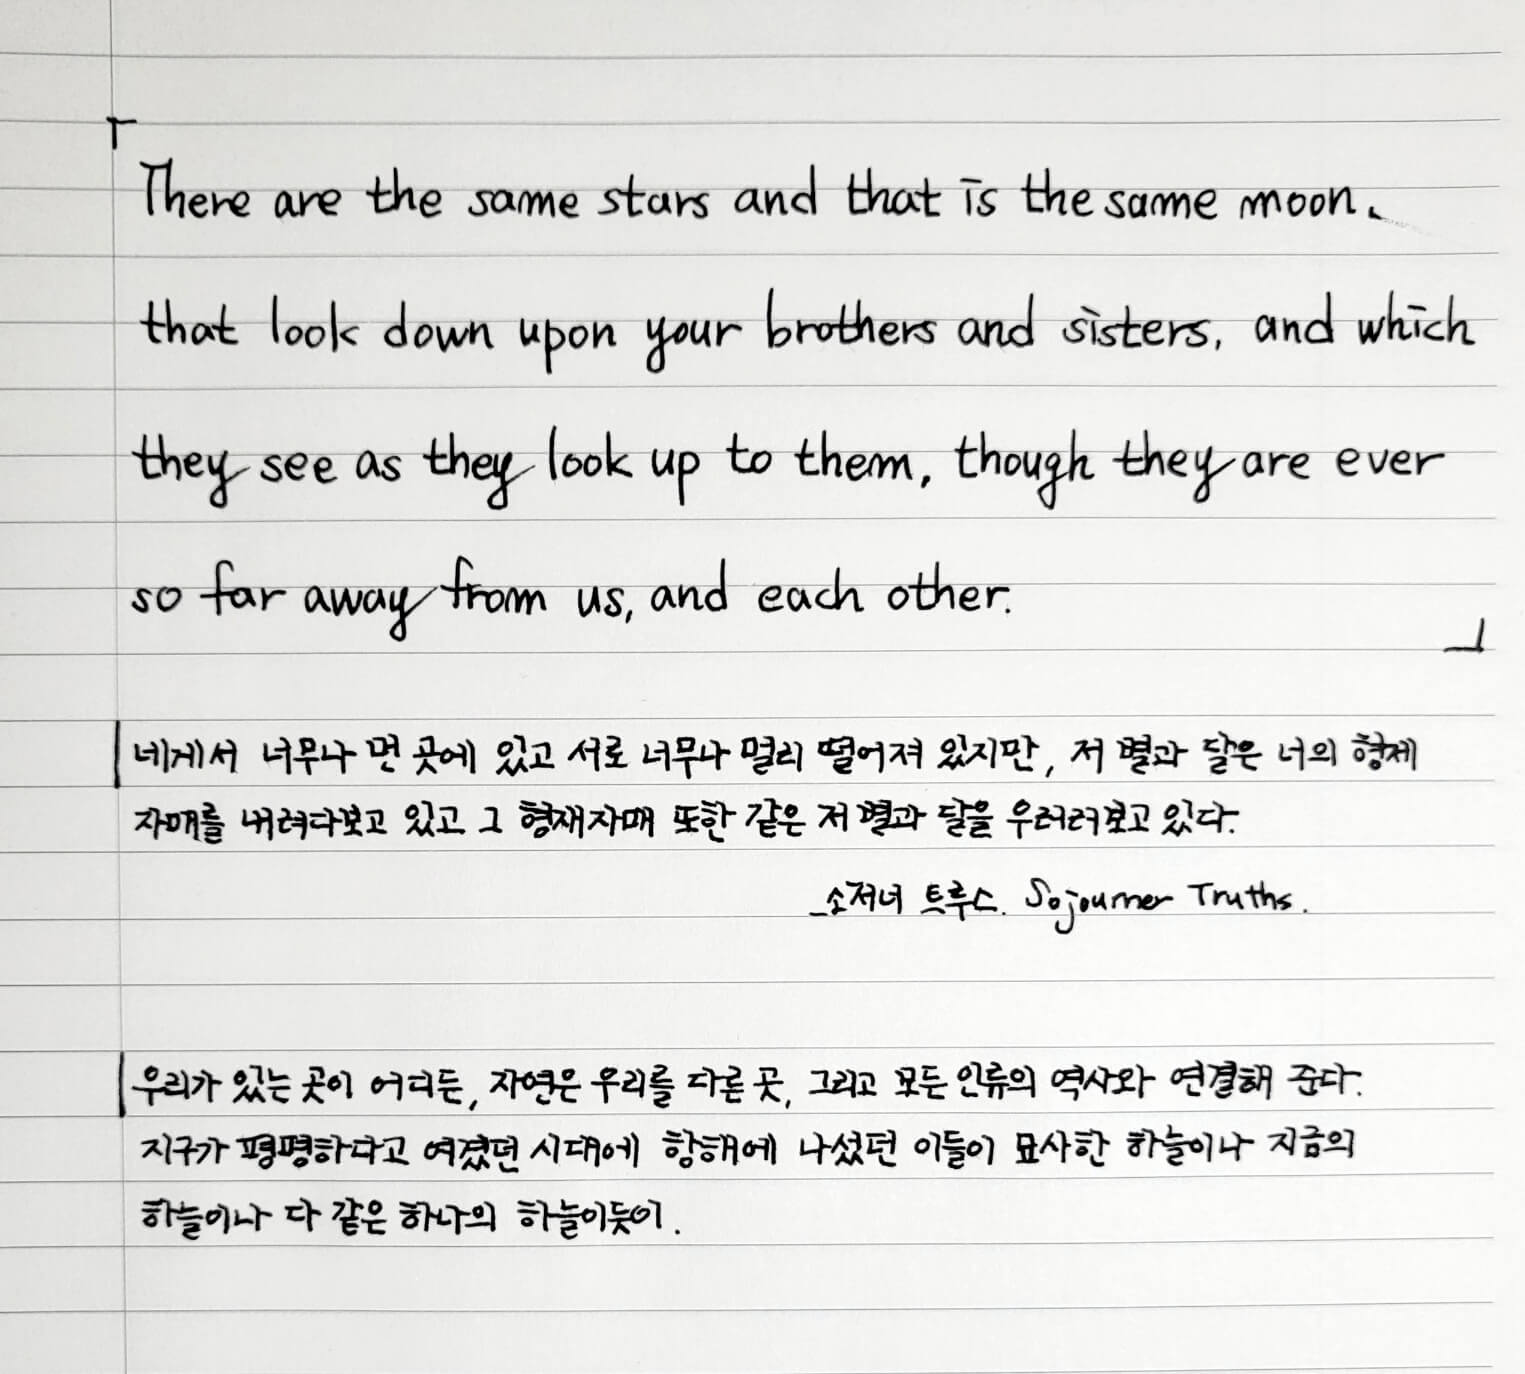 「There are the same stars and that is the same moon.
that look down upon your brothers and sisters, and which
they see as they look up to them, though they are ever
so far away from us, and each other.」
네게서 너무나 먼 곳에 있고 서로 너무나 멀리 떨어져 있지만, 저 별과 달은 너의 형제
자매를 내려다보고 있고 그 형재자매 또한 같은 저 별과 달을 우러러보고 있다.
_소저너 트루스. Sojourner Truths.
우리가 있는 곳이 어디든, 자연은 우리를 다른 곳, 그리고 모든 인류의 역사와 연결해 준다.
지구가 평평하다고 여겼던 시대에 항해에 나섰던 이들이 묘사한 하늘이나 지금의
하늘이나 다 같은 하나의 하늘이듯이.